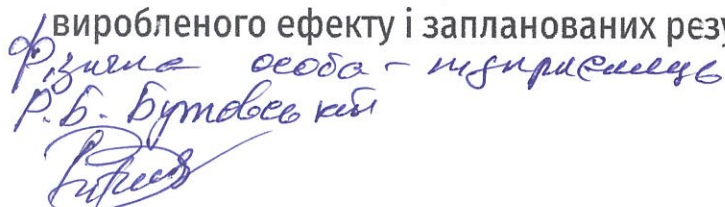 виробленого ефекту і запланованих резу
Фізична особа - підприємець
Р.Б. Бутовський